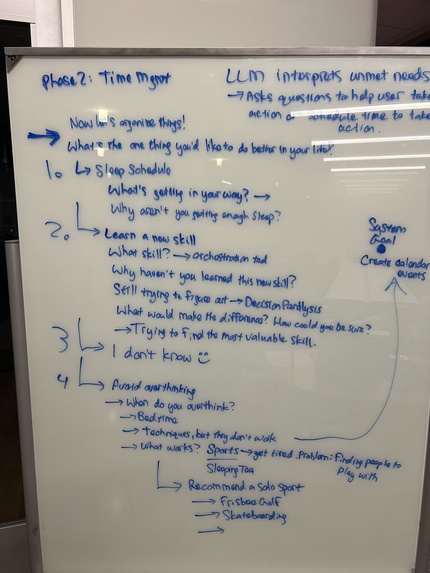 Phase 2: Time Mgmt
LLM interprets unmet needs
→ Asks questions to help user take
action or schedule time to take
action.
Now let's organize things!
→ What's the one thing you'd like to do better in your life?
1. → Sleep Schedule
What's getting in your way? →
Why aren't you getting enough sleep?
2. → Learn a new skill
What skill? → orchestration tool
Why haven't you learned this new skill?
Still trying to figure out → Decision Paralysis
What would make the difference? How could you be sure?
→ Trying to find the most valuable skill.
3 → I don't know :)
4 → Avoid overthinking
→ When do you overthink?
→ Bedtime
→ Techniques, but they don't work
→ What works? Sports → get tired. Problem: Finding people to
play with
Sleeping Tea
→ Recommend a solo sport
→ Frisbee Golf
→ Skateboarding
→
System
Goal
Create calendar
events